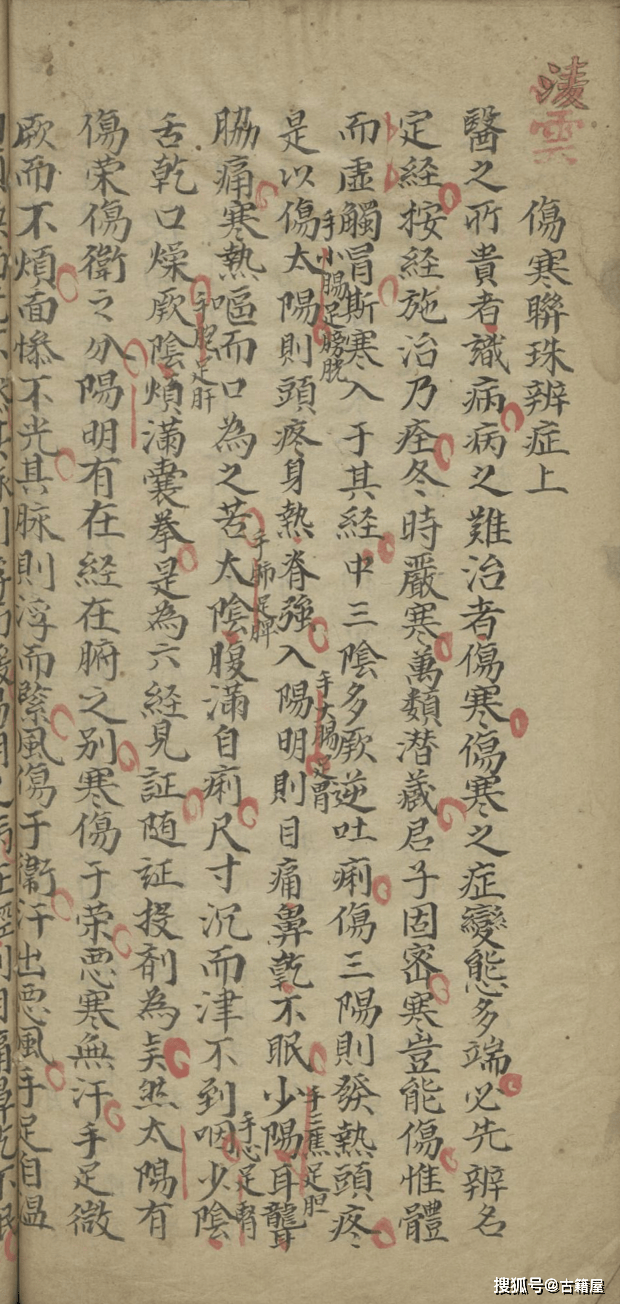 凌雲
傷寒聯珠辨症上
醫之所貴者識病病之難治者傷寒傷寒之症變態多端必先辨名
定経按経施治乃痊冬時嚴寒萬類潛藏君子固密寒豈能傷惟體
而虛觸冒斯寒入于其経中三陰多厥逆吐痢傷三陽則發熱頭疼
是以傷太陽則頭疼身熱脊強入陽明則目痛鼻乾不眠少陽耳聾
手小腸足膀胱
手大腸足胃
手三焦足胆
脇痛寒熱嘔而口為之苦太陰腹滿自痢尺寸沉而津不到咽少陰
手肺足脾
手心足腎
舌乾口燥厥陰煩滿囊拳是為六経見証随証投剤為美然太陽有
手胞足肝
傷荣傷衛之分陽明有在経在腑之别寒傷于荣悪寒無汗手足微
厥而不煩面慘不光其脉則浮而緊風傷于衛汗出悪風手足自温
搜狐号@古籍屋